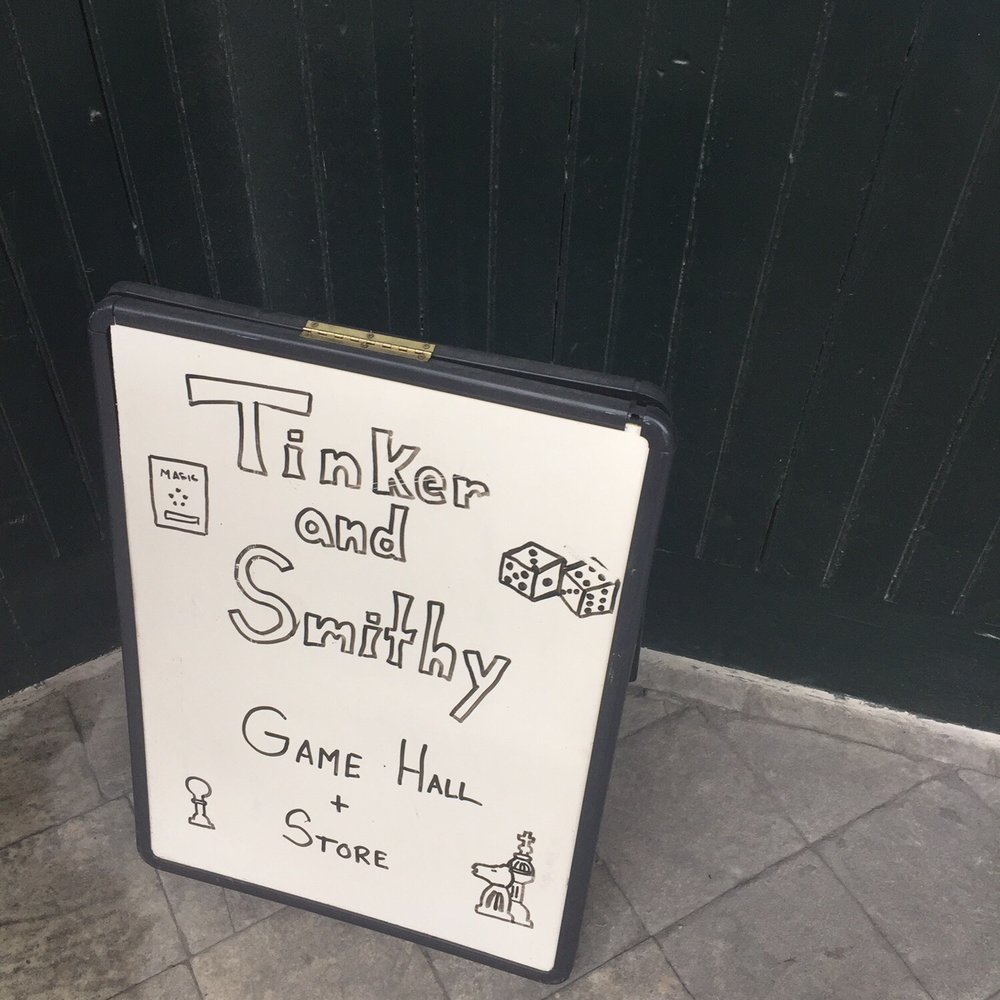 Tinker
MAGIC
and
Smithy
GAME HALL
+
STORE